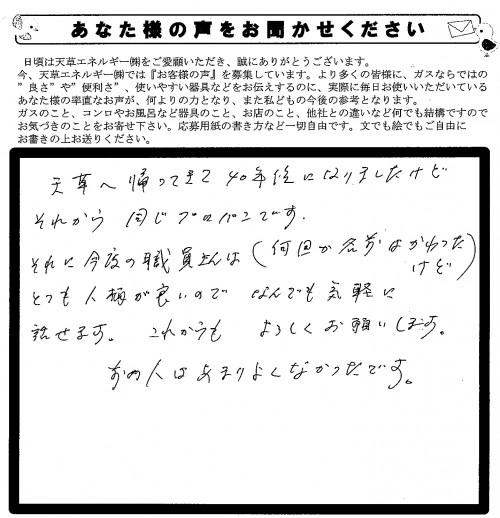 あなた様の声をお聞かせください
日頃は天草エネルギー㈱をご愛顧いただき、誠にありがとうございます。
今、天草エネルギー㈱では『お客様の声』を募集しています。より多くの皆様に、ガスならではの
”良さ”や”便利さ”、使いやすい器具などをお伝えするのに、実際に毎日お使いいただいている
あなた様の率直なお声が、何よりの力となり、また私どもの今後の参考となります。
ガスのこと、コンロやお風呂など器具のこと、お店のこと、他社との違いなど何でも結構ですので
お気づきのことをお寄せ下さい。応募用紙の書き方など一切自由です。文でも絵でもご自由に
お書きの上お送りください。
天草へ帰ってきて 40年位になりましたけど
それから 同じプロパンです.
それに今度の職員さんは (何回か名前はかわった
けど)
とても人柄が良いので なんでも気軽に
話せます。 これからも よろしくお願いします。
前の人はあまりよくなかったです。